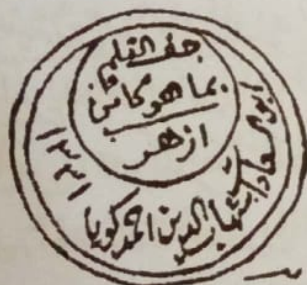 جف القلم
بما هو كائن
ازهر
ابو السعادات شهاب الدين احمد كويا
١٣٣١